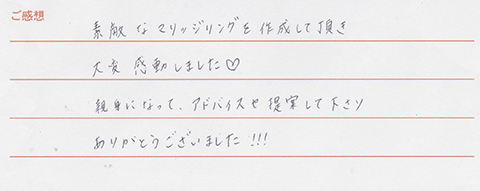 ご感想
素敵なマリッジリングを作成して頂き
大変感動しました♡
親身になって、アドバイスや提案して下さり
ありがとうございました!!!